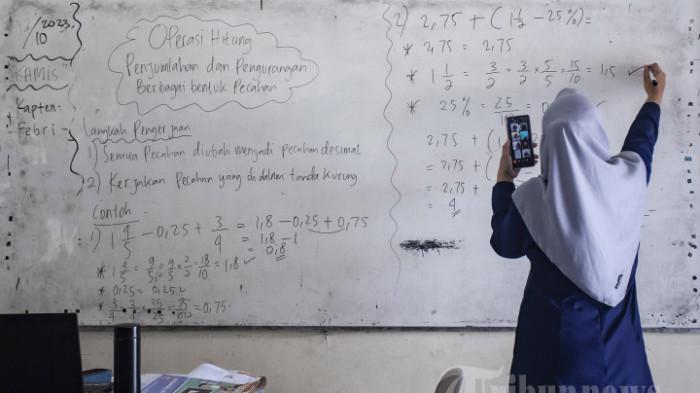 /2023.
10
KAMIS
Kapten:
Febri -
Operasi Hitung
Penjumlahan dan Pengurangan
Berbagai bentuk Pecahan
Langkah Pengerjaan
1) Semua Pecahan diubah menjadi pecahan desimal
2) Kerjakan Pecahan yang di dalam tanda kurung
Contoh
1) 1 4/5 - 0,25 + 3/4 = 1,8 - 0,25 + 0,75
= 1,8 - 1
= 0,8
* 1 4/5 = 9/5 = 9/5 × 2/2 = 18/10 = 1,8 ✓
* 0,25 = 0,25 ✓
* 3/4 = 3/4 × 25/25 = 75/100 = 0,75
2) 2,75 + (1 1/2 - 25%) =
* 2,75 = 2,75
* 1 1/2 = 3/2 = 3/2 × 5/5 = 15/10 = 1,5 ✓
* 25% = 25
2,75 + (1
= 2,75 + (
= 2,75 +
= 4
Tribunnews